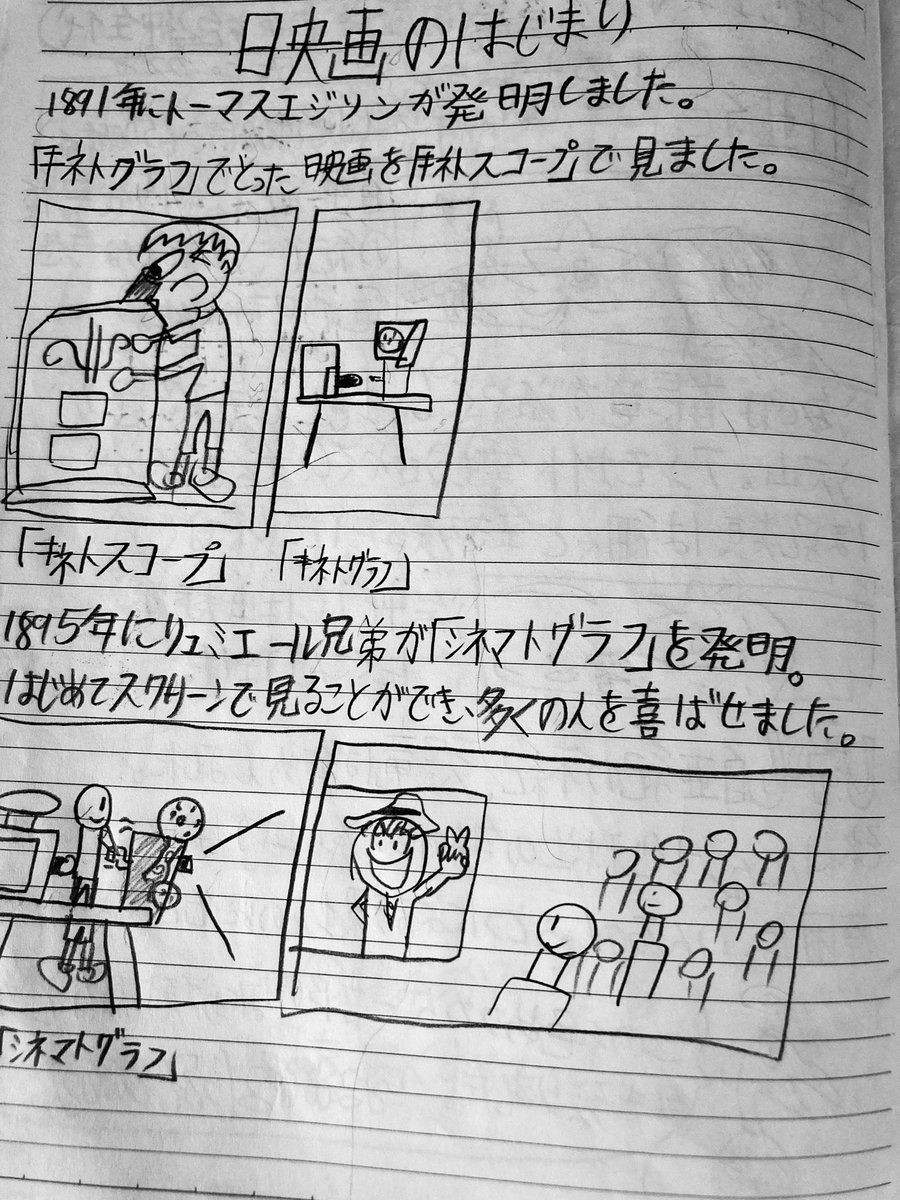 映画のはじまり
1891年にトーマスエジソンが発明しました。
「キネトグラフ」でとった映画を「キネトスコープ」で見ました。
「キネトスコープ」 「キネトグラフ」
1895年にリュミエール兄弟が「シネマトグラフ」を発明。
はじめてスクリーンで見ることができ、多くの人を喜ばせました。
「シネマトグラフ」